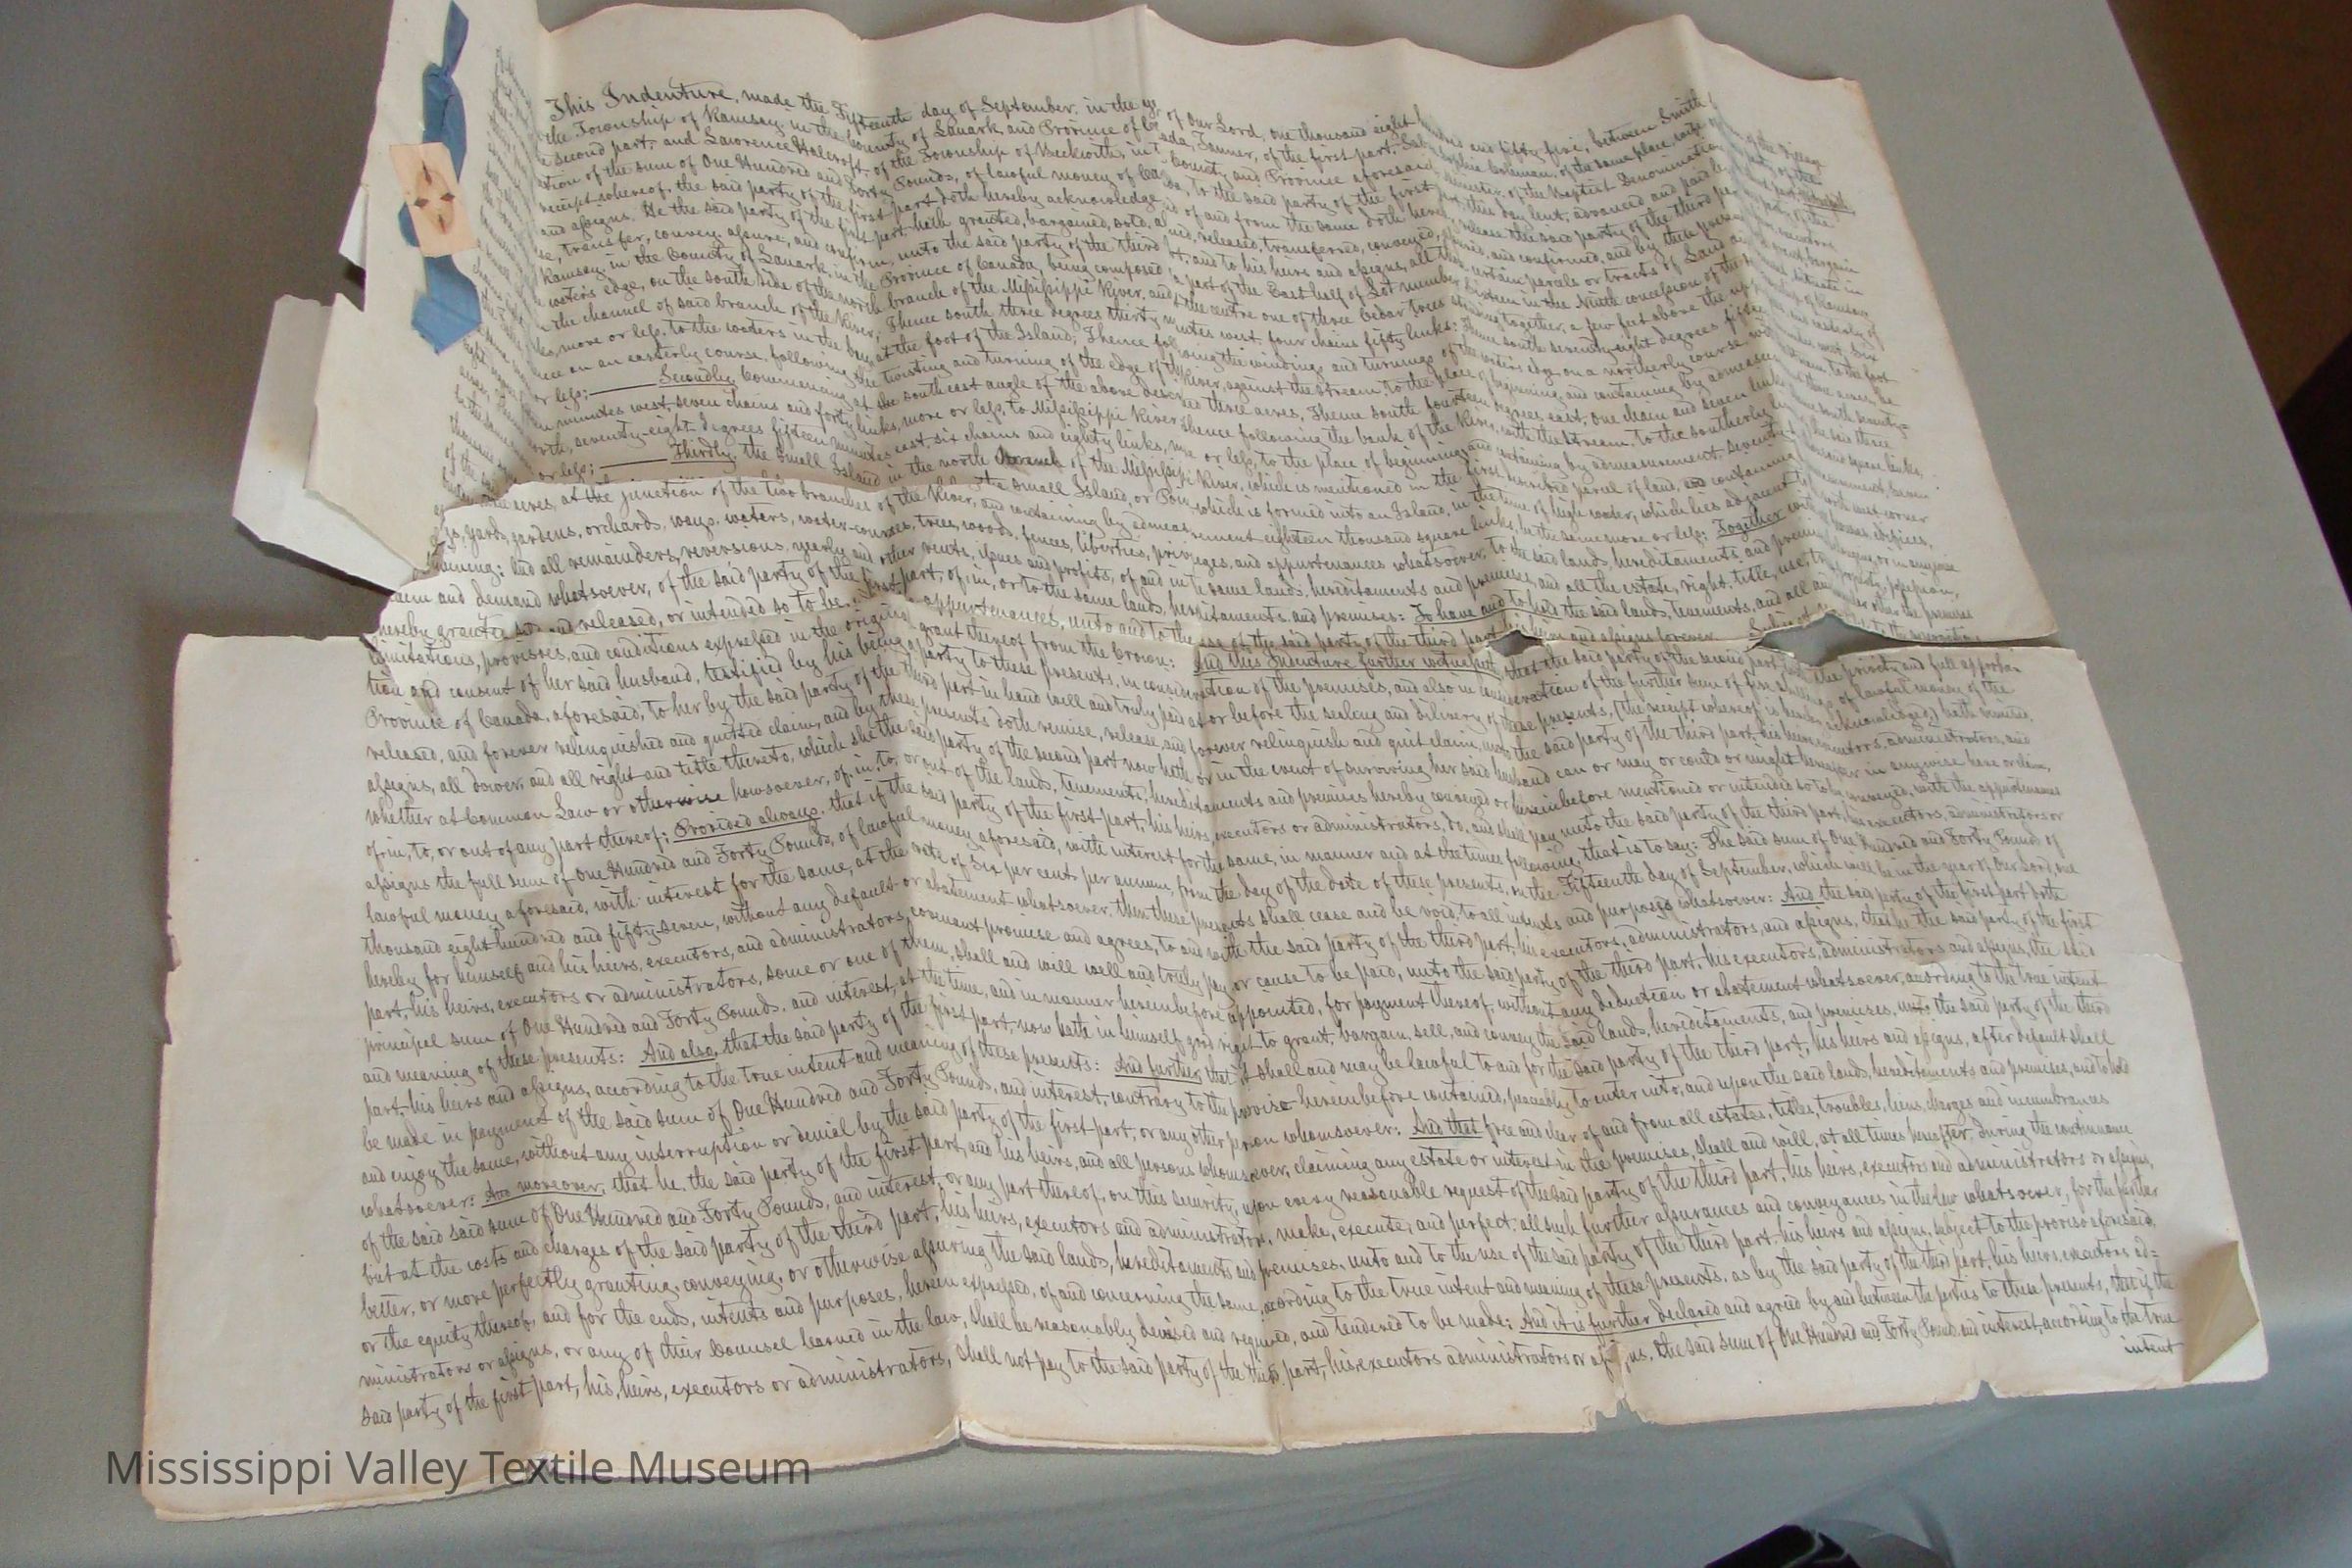 This Indenture, made the Fifteenth day of September, in the of Our Lord, one thousand eight hundred and fifty five, between Smith
the Township of Ramsay, in the County of Lanark, and Province of Tanner, of the first part, Sophia Coleman, of the same place, wife of
second part, and Lawrence Halcroft, of the Township of Beckwith, in County and Province aforesaid, minister, of the Baptist Denomination
of the sum of One Hundred and Forty Pounds, of lawful money of to the said party of the first this day lent, advanced and paid by
receipt whereof, the said party of the first part doth hereby acknowledge, and of and from the same doth release the said party of the third
and assigns. He the said party of the first part, hath granted, bargained, sold, released, transferred, conveyed, and confirmed, and by these
transfer, convey, assure, and confirm, unto the said party of the third and to his heirs and assigns, all certain parcels or tracts of Land
Ramsay, in the County of Lanark, in the Province of Canada, being composed part of the East half of Lot number Sixteen in the Ninth concession of the
water's edge, on the south side of the north branch of the Mississippi River, and the centre one of three Cedar trees together, a few feet above the
the channel of said branch of the River; Thence south three degrees thirty minutes west, four chains fifty links: Thence south seventy-eight degrees
more or less, to the waters in the bay, at the foot of the Island; Thence following the windings and turnings of the waters edge, on a northerly course
on an easterly course, following the twisting and turning of the edge of the River, against the stream, to the place of beginning, and containing by
or less; Secondly, Commencing at the south east angle of the above described three acres, Thence south fourteen degrees east, one chain and seven
minutes west, seven chains and forty links, more or less, to Mississippi River thence following the bank of the River, with the stream, to the southerly
seventy-eight degrees fifteen minutes east six chains and eighty links, or less, to the place of beginning, and containing by admeasurement,
or less; Thirdly, the small Island in the north branch of the Mississippi River, which is mentioned in the first described parcel of land, and containing
acres, at the junction of the two branches of the River, and containing by admeasurement eighteen thousand square links, be the same more or less; Together
yards, gardens, orchards, ways, waters, water-courses, trees, woods, fences, liberties, privileges, and appurtenances whatsoever, to the said lands, hereditaments and
And all remainders, reversions, yearly and other rents, issues and profits, of and in same lands, hereditaments and premises, and all the estate, right, title, use,
claim and demand whatsoever, of the said party of the first part, of, in, or to the same lands, hereditaments, and premises: To have and to hold the said lands, tenements, and all
hereby granted and released, or intended so to be, appurtenances, unto and to the use of the said party of the third part his heirs and assigns forever.
limitations, provisoes, and conditions expressed in the original grant thereof from the Crown: And this Indenture further witnesseth, that the said party of the second part the privity and full
tion and consent of her said husband, testified by his being a party to these presents, in consideration of the premises, and also in consideration of the further sum of five of lawful money of the
Province of Canada, aforesaid, to her by the said party of the third part in hand well and truly paid at or before the sealing and delivery of these presents, (the receipt whereof is hereby acknowledged,) hath
released, and forever relinquished and quitted claim, and by these presents doth remise, release, and forever relinquish and quit claim, unto the said party of the third part, his heirs executors, administrators, and
assigns, all dower, and all right and title thereto, which she the said party of the second part now hath or in the event of surviving her said husband can or may or could or might hereafter in anywise have or claim,
whether at Common Law or otherwise howsoever, of, in, to, or out of the lands, tenements, hereditaments and premises hereby conveyed or hereinbefore mentioned or intended so to be conveyed, with the appurtenances
of, in, to, or out of any part thereof; Provided always, that if the said party of the first part, his heirs, executors or administrators, do, and shall pay unto the said party of the third part, his executors, administrators or
assigns the full sum of One Hundred and Forty Pounds, of lawful money aforesaid, with interest for the same, in manner and at the times following, that is to say: The said sum of One Hundred and Forty Pounds of
lawful money aforesaid, with interest for the same, at the rate of six per cent per annum, from the day of the date of these presents, on the Fifteenth day of September, which will be in the year of Our Lord, one
thousand eight hundred and fifty seven, without any default or abatement whatsoever, then these presents shall cease and be void, to all intents and purposes whatsoever: And the said party of the first part doth
hereby for himself and his heirs, executors, and administrators, covenant promise and agrees, to and with the said party of the third part, his executors, administrators, and assigns, that he the said party of the first
part, his heirs, executors or administrators, some or one of them, shall and will well and truly pay or cause to be paid, unto the said party of the third part, his executors, administrators and assigns, the said
principal sum of One Hundred and Forty Pounds, and interest, at the time, and in manner hereinbefore appointed, for payment thereof, without any deduction or abatement whatsoever, according to the true intent
and meaning of these presents: And also, that the said party of the first part, now hath in himself, good right to grant, bargain, sell, and convey the said lands, hereditaments, and premises, unto the said party of the third
part, his heirs and assigns, according to the true intent and meaning of these presents: And further, that it shall and may be lawful to and for the said party of the third part, his heirs and assigns, after default shall
be made in payment of the said sum of One Hundred and Forty Pounds, and interest, contrary to the proviso hereinbefore contained, peaceably to enter into, and upon the said lands, hereditaments and premises, and to hold
and enjoy the same, without any interruption or denial by the said party of the first part, or any other person whomsoever: And that free and clear of and from all estates, titles, troubles, liens, charges and incumbrances
whatsoever: And moreover, that he, the said party of the first part, and his heirs, and all persons whomsoever, claiming any estate or interest in the premises, shall and will, at all times hereafter, during the continuance
of the said said sum of One Hundred and Forty Pounds, and interest, or any part thereof, on this security, upon every reasonable request of the said party of the third part, his heirs, executors and administrators or assigns,
but at the costs and charges of the said party of the third part, his heirs, executors and administrators, make, execute, and perfect, all such further assurances and conveyances in the law whatsoever, for the further
better, or more perfectly granting, conveying, or otherwise assuring the said lands, hereditaments and premises, unto and to the use of the said party of the third part his heirs and assigns, subject to the proviso aforesaid,
or the equity thereof, and for the ends, intents and purposes, herein expressed, of and concerning the same, according to the true intent and meaning of these presents, as by the said party of the third part, his heirs, executors ad=
ministrators or assigns, or any of their Counsel learned in the law, shall be reasonably devised and required, and tendered to be made; And it is further declared and agreed by and between the parties to these presents, that if the
said party of the first part, his, heirs, executors or administrators, shall not pay to the said party of the third part, his executors administrators or the said sum of One Hundred and Forty Pounds and interest, according to the true
intent
Mississippi Valley Textile Museum